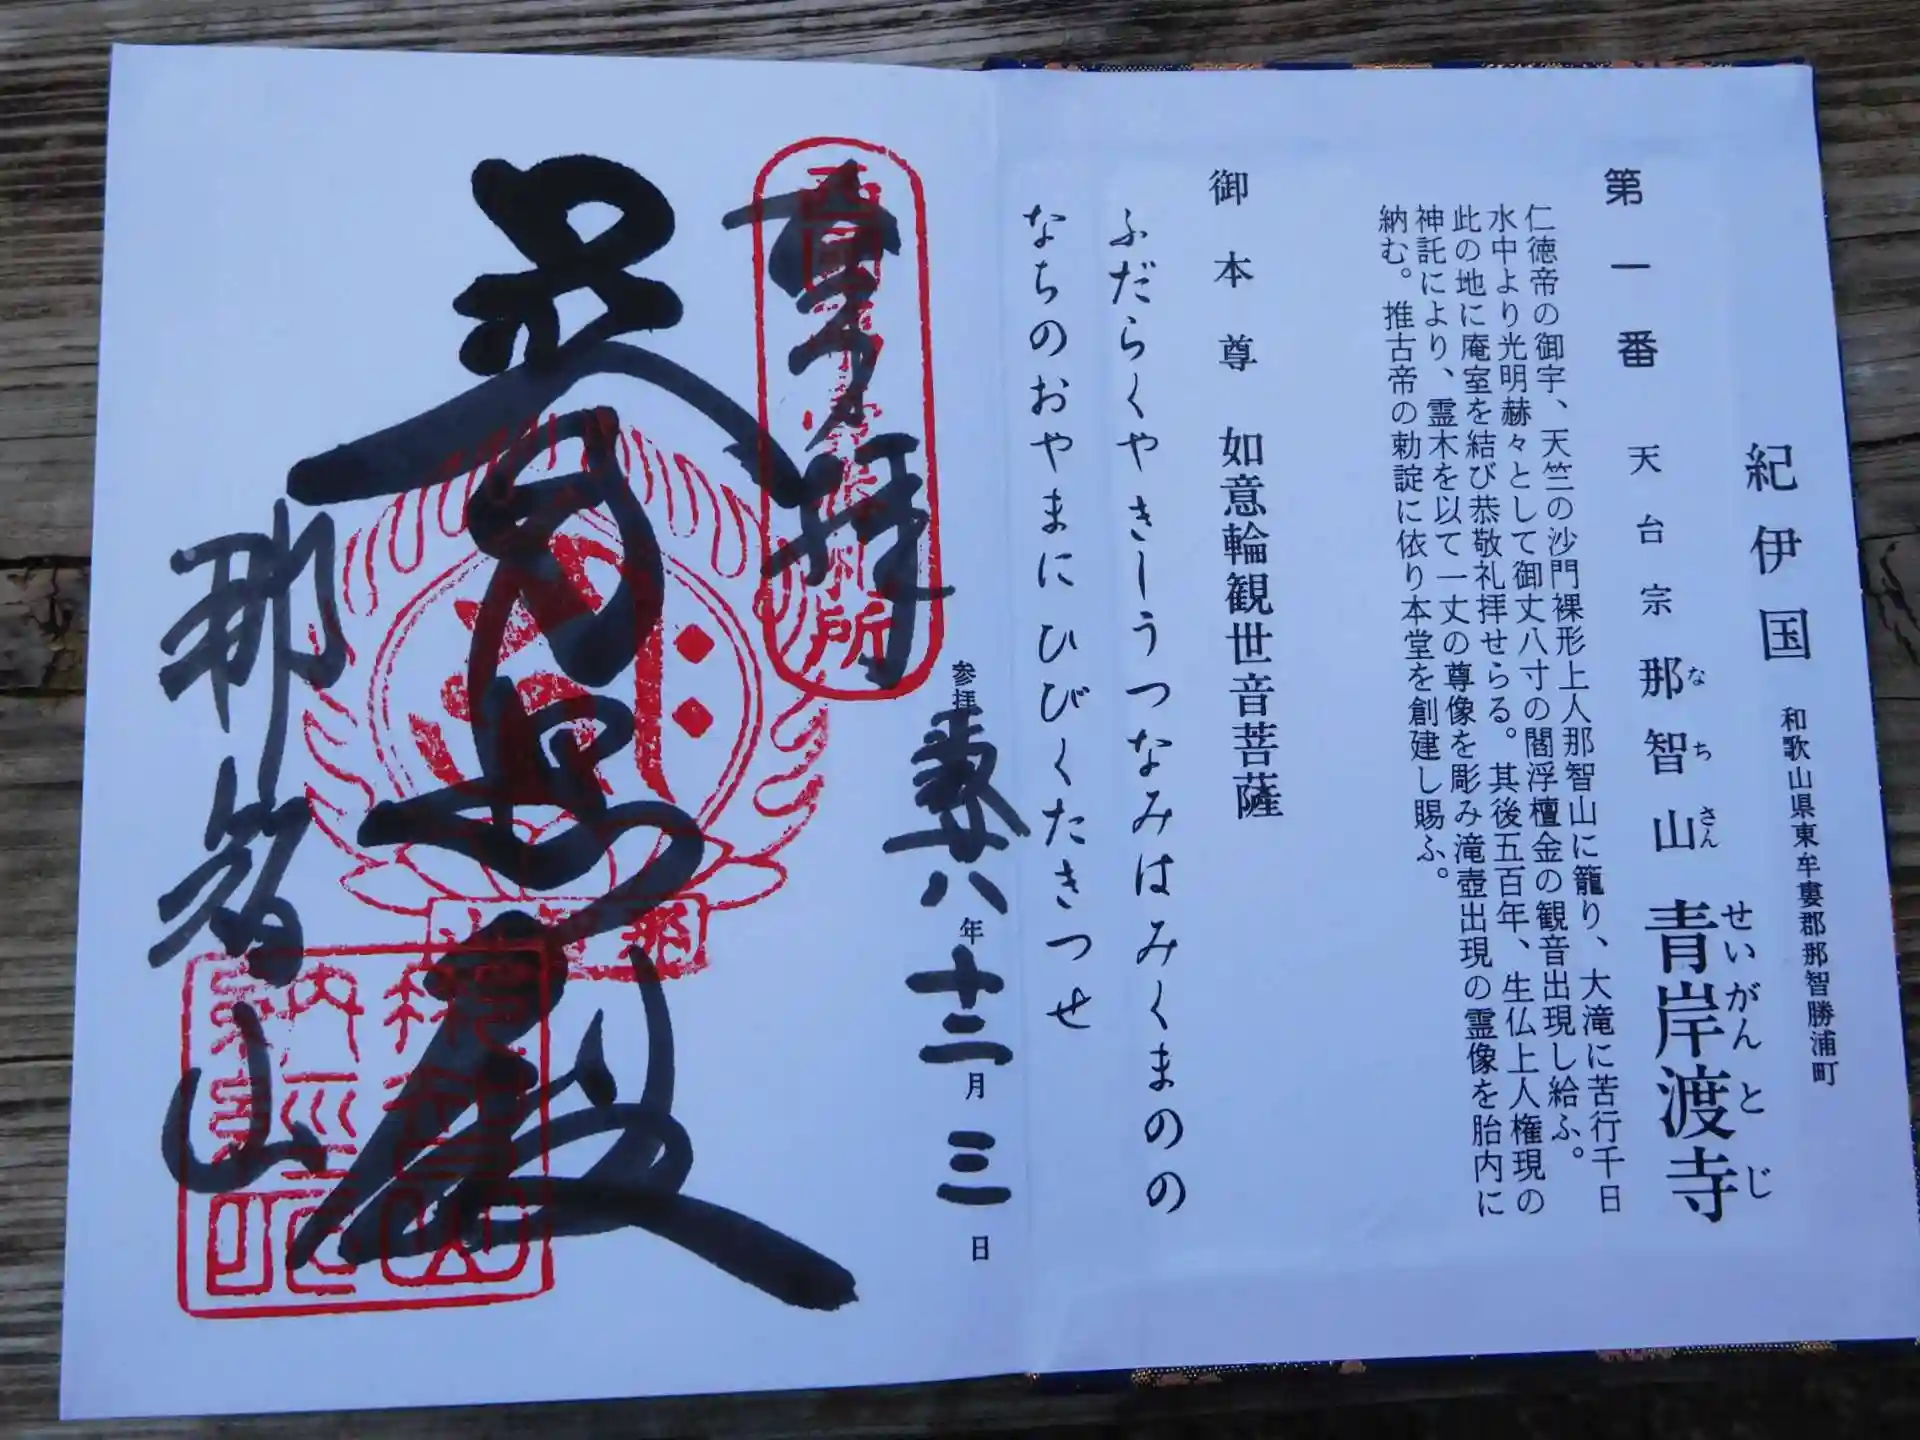 紀伊国 和歌山県東牟婁郡那智勝浦町
第一番 天台宗 那智山 青岸渡寺
なちさん せいがんとじ
仁徳帝の御宇、天竺の沙門裸形上人那智山に籠り、大滝に苦行千日
水中より光明赫々として御丈八寸の閻浮檀金の観音出現し給ふ。
此の地に庵室を結び恭敬礼拝せらる。其後五百年、生仏上人権現の
神託により、霊木を以て一丈の尊像を彫み滝壺出現の霊像を胎内に
納む。推古帝の勅諚に依り本堂を創建し賜ふ。
御本尊 如意輪観世音菩薩
ふだらくやきしうつなみはみくまのの
なちのおやまにひびくたきつせ
参拝 廿八年十二月三日
奉拝
那智山